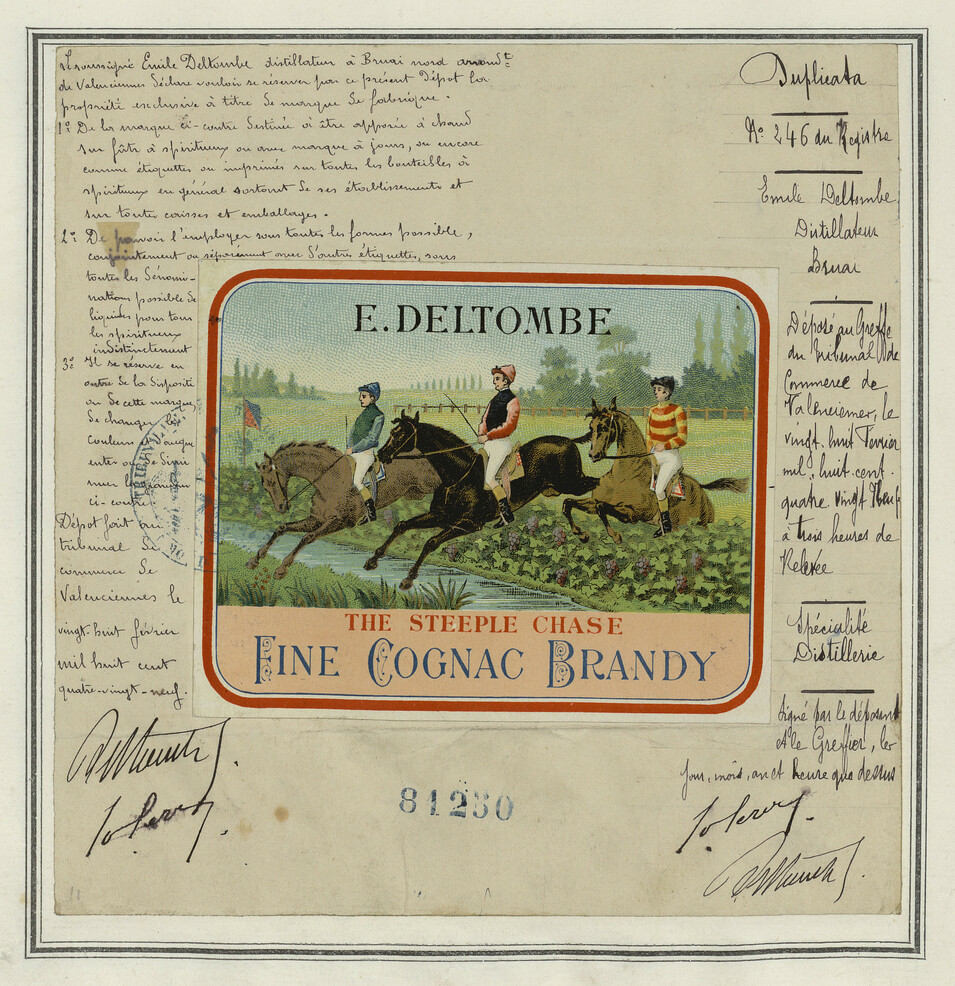 Le soussigné Emile Deltombe distillateur à Bruai nord arrond.t
de Valenciennes déclare vouloir se réserver par ce présent dépot la
propriété exclusive à titre de marque de fabrique.
1.º De la marque ci-contre destinée à être apposée à chaud
sur fûts à spiritueux ou avec marque à jours, ou encore
comme étiquettes ou imprimés sur toutes les bouteilles à
spiritueux en général sortant de ses établissements et
sur toutes caisses et emballages.
2.º De pouvoir l'employer sous toutes les formes possible,
conjointement ou séparément avec d'autres étiquettes, sous
toutes les dénomi-
nations possible de
liquides pour tous
les spiritueux
indistinctement
3.º Il se réserve en
outre de la
de cette marque
de changer les
couleurs
ci-contre
Dépot fait au
tribunal de
commerce de
Valenciennes le
vingt-huit février
mil huit cent
quatre-vingt-neuf.
E. DELTOMBE
THE STEEPLE CHASE
FINE COGNAC BRANDY
81230
Duplicata
Nº 246 du Registre
Emile Deltombe
Distillateur
Bruai
Déposé au Greffe
du Tribunal de
Commerce de
Valenciennes, le
vingt-huit Février
mil huit cent
quatre vingt Neuf
à trois heures de
Relevée
Spécialité
Distillerie
Signé par le déposant
et le Greffier, les
jour, mois, an et heure que dessus